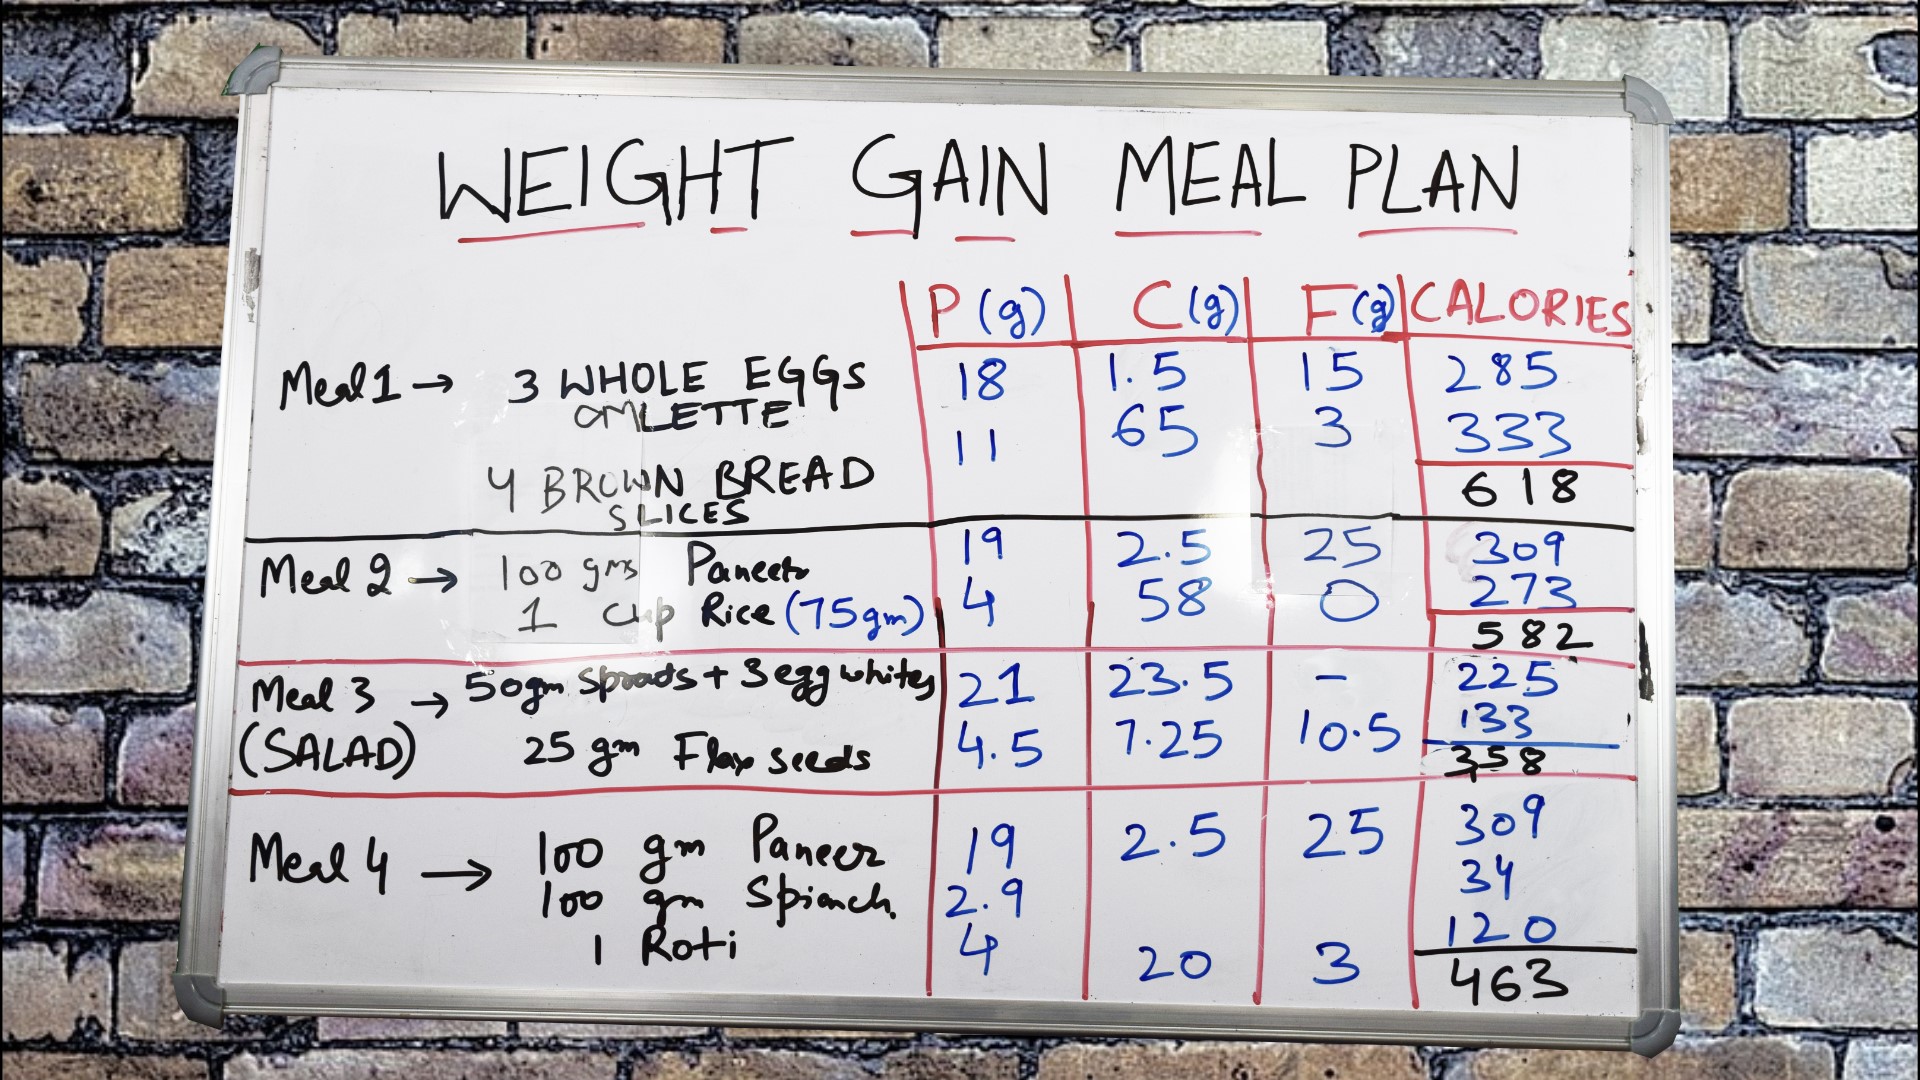 WEIGHT GAIN MEAL PLAN
P (g) C (g) F (g) CALORIES
Meal 1 → 3 WHOLE EGGS 18 1.5 15 285
OMLETTE
11 65 3 333
4 BROWN BREAD 618
SLICES
Meal 2 → 100 gms Paneer 19 2.5 25 309
1 Cup Rice (75gm) 4 58 0 273
582
Meal 3 → 50gm Sprouts + 3 egg whites 21 23.5 - 225
(SALAD) 25 gm Flax seeds 4.5 7.25 10.5 133
358
Meal 4 → 100 gm Paneer 19 2.5 25 309
100 gm Spianch 2.9 34
1 Roti 4 20 3 120
463